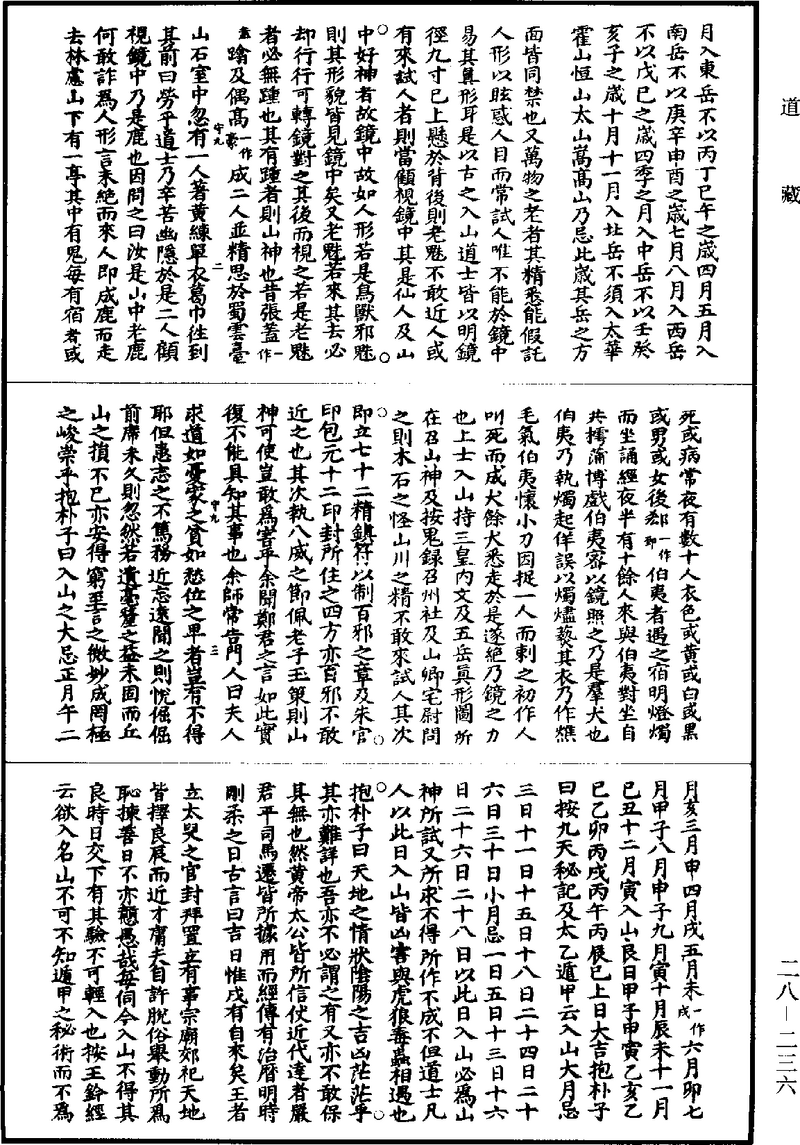 道藏
月入東岳不以丙丁巳午之歲四月五月入
南岳不以庚辛申酉之歲七月八月入西岳
不以戊巳之歲四季之月入中岳不以壬癸
亥子之歲十月十一月入北岳不須入太華
霍山恒山太山嵩高山乃忌此歲其岳之方
面皆同禁也又萬物之老者其精悉能假託
人形以眩惑人目而常試人唯不能於鏡中
易其真形耳是以古之入山道士皆以明鏡
徑九寸已上懸於背後則老魅不敢近人或
有來試人者則當顧視鏡中其是仙人及山
中好神者故鏡中故如人形若是鳥獸邪魅
則其形貌皆見鏡中矣又老魅若來其去必
却行行可轉鏡對之其後而視之若是老魅
者必無踵也其有踵者則山神也昔張蓋一作
蹹及偶高一作豪成二人並精思於蜀雲臺
守九 二
山石室中忽有一人著黃練單衣葛巾往到
其前曰勞乎道士乃辛苦幽隱於是二人顧
視鏡中乃是鹿也因問之曰汝是山中老鹿
何敢詐為人形言未絕而來人即成鹿而走
去林慮山下有一亭其中有鬼每有宿者或
死或病常夜有數十人衣色或黃或白或黑
或男或女後郄一作郅伯夷者過之宿明燈燭
而坐誦經夜半有十餘人來與伯夷對坐自
共摴蒲博戲伯夷密以鏡照之乃是羣犬也
伯夷乃執燭起佯誤以燭燼爇其衣乃作燋
毛氣伯夷懷小刀因捉一人而刺之初作人
叫死而成犬餘犬悉走於是遂絕乃鏡之力
也上士入山持三皇內文及五岳真形圖所
在召山神及按鬼錄召州社及山卿宅尉問
之則木石之怪山川之精不敢來試人其次
即立七十二精鎮符以制百邪之章及朱官
印包元十二印封所住之四方亦百邪不敢
近之也其次執八威之節佩老子玉策則山
神可使豈敢為害乎余聞鄭君之言如此實
復不能具知其事也余師常告門人曰夫人
守九 三
求道如憂家之貧如愁位之卑者豈有不得
耶但患志之不篤務近忘遠聞之則悅倔倔
前席未久則忽然若遺毫釐之益未固而丘
山之損不已亦安得窮至言之微妙成罔極
之峻崇乎抱朴子曰入山之大忌正月午二
月亥三月申四月戌五月未一作戌六月卯七
月甲子八月申子九月寅十月辰未十一月
已丑十二月寅入山良日甲子甲寅乙亥乙
巳乙卯丙戌丙午丙辰已上日大吉抱朴子
曰按九天秘記及太乙遁甲云入山大月忌
三日十一日十五日十八日二十四日二十
六日三十日小月忌一日五日十三日十六
日二十六日二十八日以此日入山必為山
神所試又所求不得所作不成不但道士凡
人以此日入山皆凶害與虎狼毒蟲相遇也
抱朴子曰天地之情狀陰陽之吉凶茫茫乎
其亦難詳也吾亦不必謂之有又亦不敢保
其無也然黃帝太公皆所信仗近代達者嚴
君平司馬遷皆所據用而經傳有治曆明時
剛柔之日古言曰吉日惟戊有自來矣王者
立太史之官封拜置立有事宗廟郊祀天地
皆擇良辰而近才庸夫自許脫俗舉動所為
恥揀善日不亦戇愚哉每伺今入山不得其
良時日交下有其驗不可輕入也按玉鈐經
云欲入名山不可不知遁甲之秘術而不為
二八—二三六